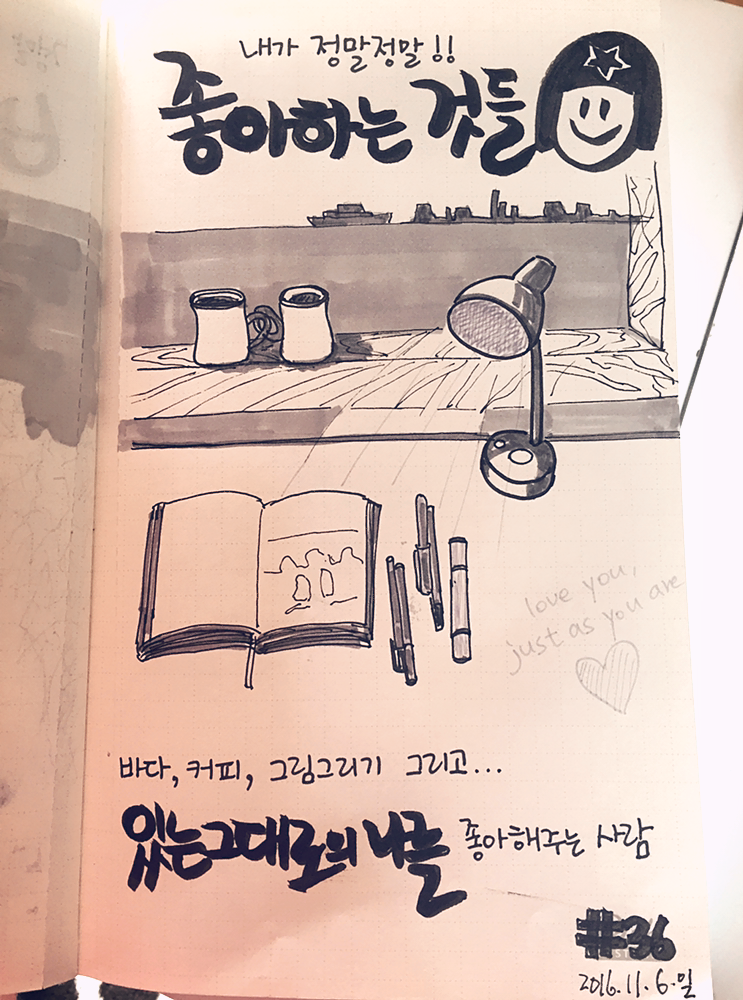 내가 정말정말!!
좋아하는 것들
love you,
just as you are
바다, 커피, 그림그리기 그리고...
있는그대로의 나를 좋아해주는 사람
#36
2016.11.6.일